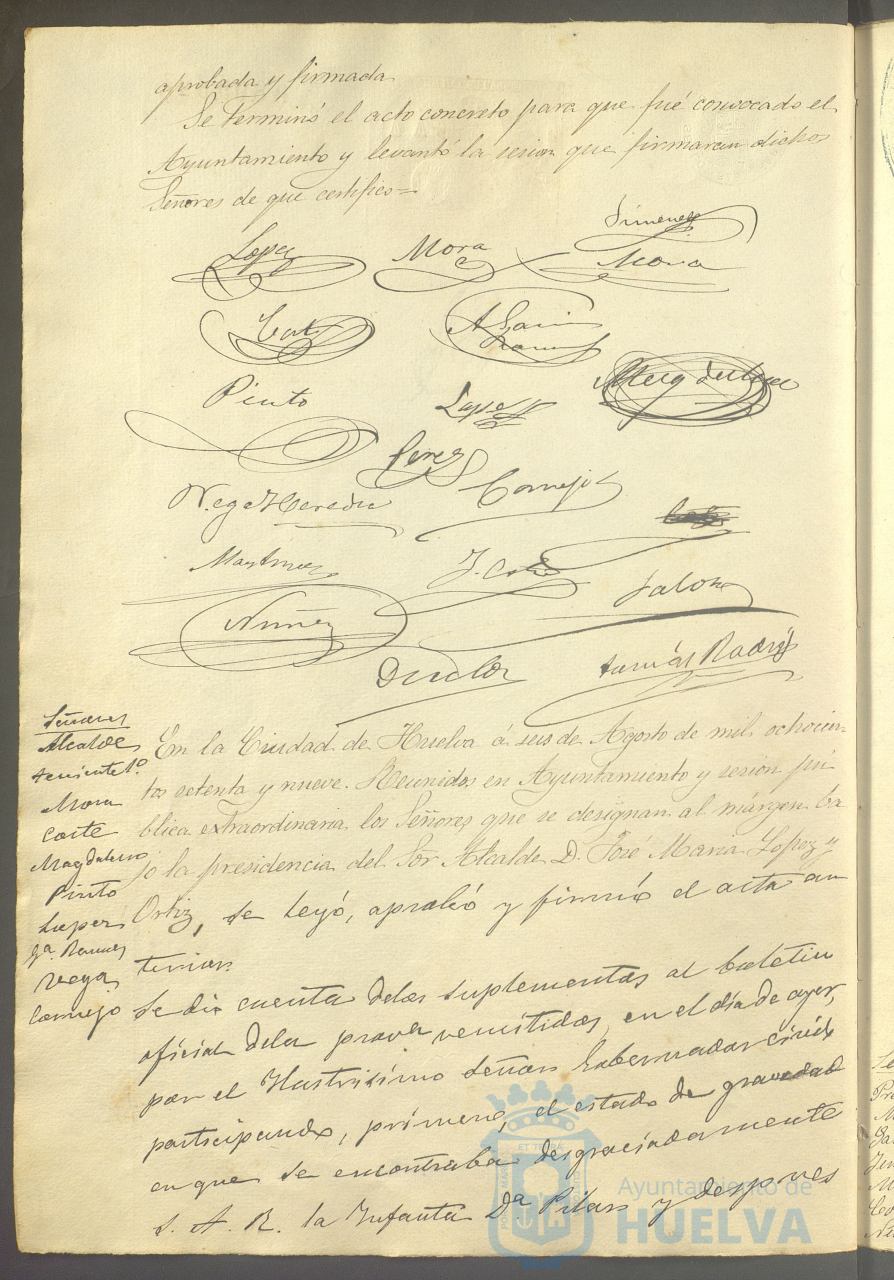 aprobada y firmada
Se Terminó el acto concreto para que fué convocado el
Ayuntamiento y levantó la sesion que firmaran dichos
Señores de que certifico=
Lopez Mora Jimenez
Mora
A Garcia
Ramos
Pinto Lopez
Perez
Vega Heredia Cornejo
Martinez
Nuñez
Señores
Alcalde
teniente 1º
Mora
Coste
Magdaleno
Pinto
Lopez
Gª Ramos
Vega
Cornejo
En la Ciudad de Huelva á seis de Agosto de mil ochocien
tos setenta y nueve. Reunidos en Ayuntamiento y sesion pú
blica extraordinaria los Señores que se designan al márgen ba
jo la presidencia del Sor Alcalde D. José Maria Lopez y
Ortiz, se leyó, aprobó y firmó el acta an
terior.
Se dio cuenta delos suplementos al boletin
oficial dela provª remitidos, en el dia de ayer,
por el Ilustrisimo señor Gobernador civil
participando, primero, el estado de gravedad
en que se encontraba desgraciadamente
S. A. R. la Infanta Dª Pilar y despues
Ayuntamiento de
HUELVA